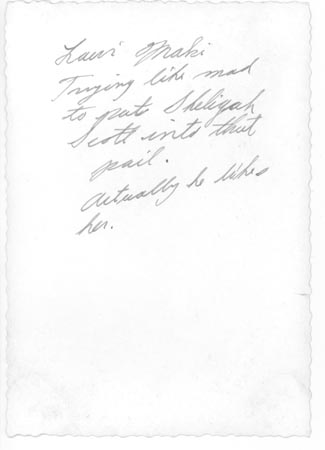 Lauri Maki
Trying like mad
to put Sheligah
Scott into that
pail.
Actually he likes
her.